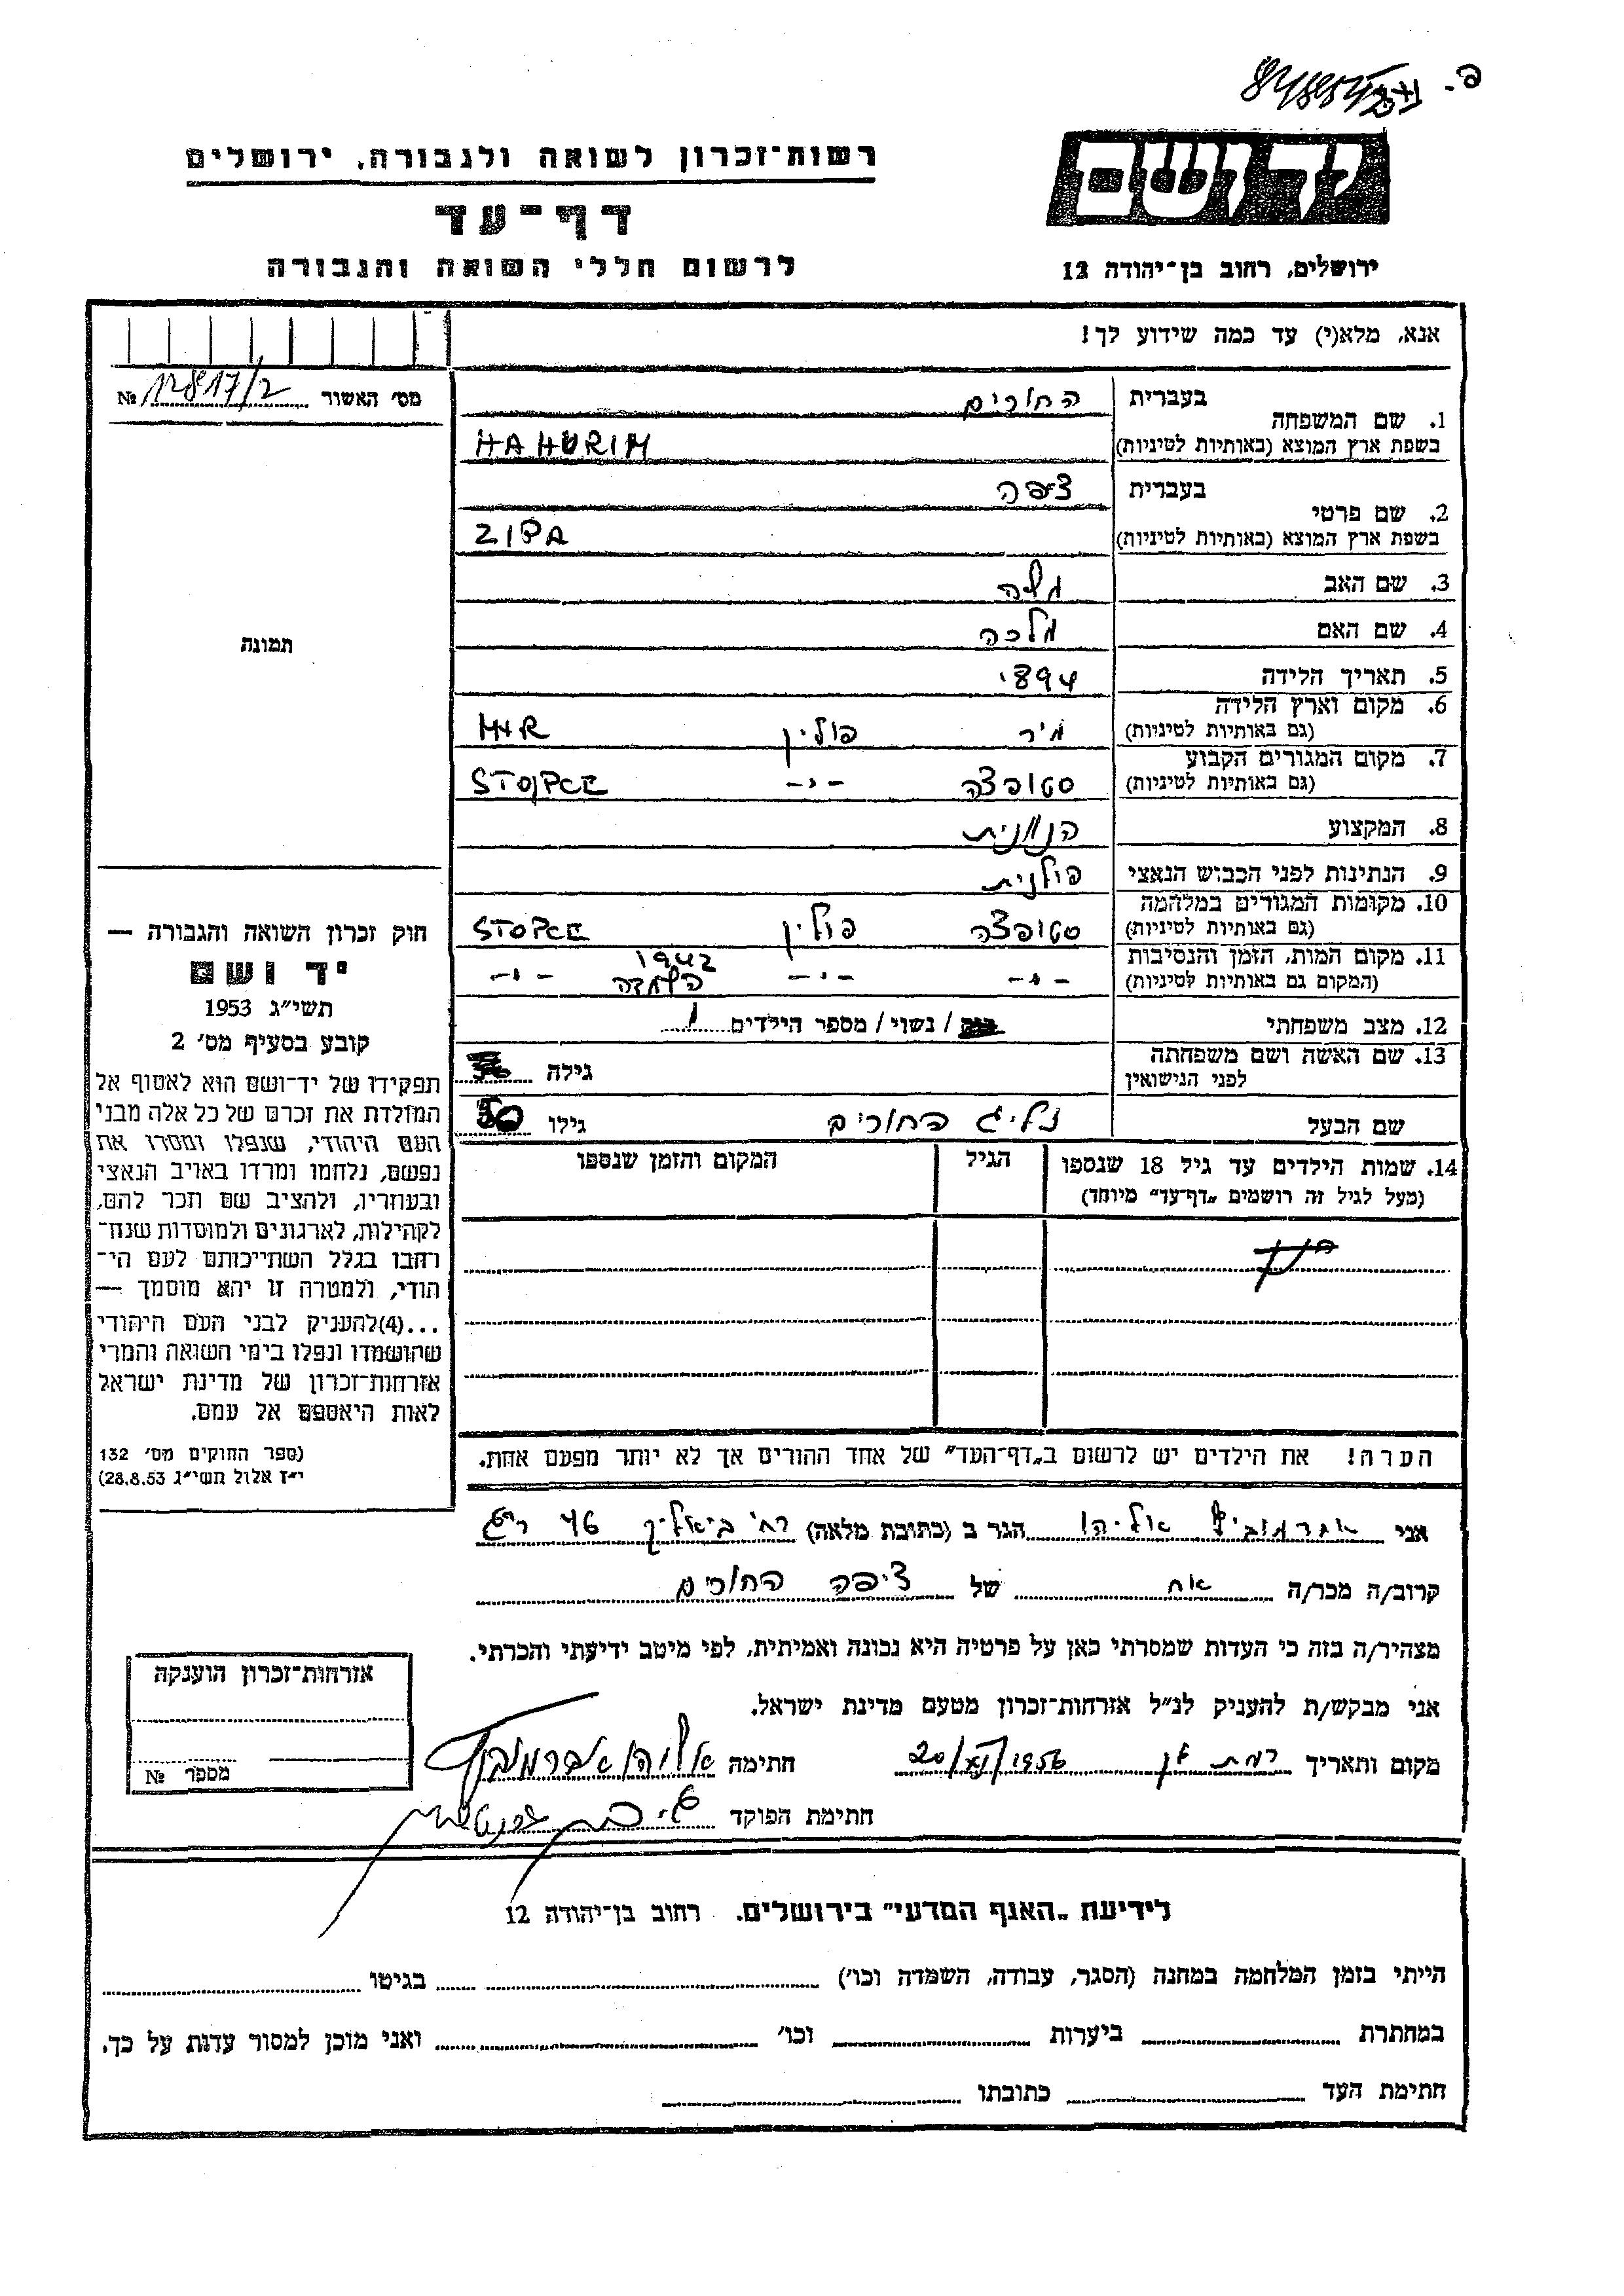 רשות־זכרון לשואה ולגבורה, ירושלים
יד ושם
דף־עד
לרשום חללי השואה והגבורה
ירושלים, רחוב בן־יהודה 12
אנא, מלא(י) עד כמה שידוע לך!
מס׳ האשור № 12817/2
תמונה
1. שם המשפחה בעברית החורים
בשפת ארץ המוצא (באותיות לטיניות) HAHURIM
2. שם פרטי בעברית ציפה
בשפת ארץ המוצא (באותיות לטיניות) ZIPA
3. שם האב משה
4. שם האם מלכה
5. תאריך הלידה 1894
6. מקום וארץ הלידה (גם באותיות לטיניות) מיר פולין MIR
7. מקום המגורים הקבוע (גם באותיות לטיניות) סטופצה -"- STOJPCE
8. המקצוע חנוונית
9. הנתינות לפני הכבוש הנאצי פולנית
10. מקומות המגורים במלחמה (גם באותיות לטיניות) סטופצה פולין STOPCE
11. מקום המות, הזמן והנסיבות (המקום גם באותיות לטיניות) -"- -"- 1942 השמדה -"-
12. מצב משפחתי / נשוי / מספר הילדים 1
13. שם האשה ושם משפחתה לפני הנישואין גילה
שם הבעל זליג החורים גילו 50
14. שמות הילדים עד גיל 18 שנספו
(מעל לגיל זה רושמים „דף־עד” מיוחד)
הגיל
המקום והזמן שנספו
הערה! את הילדים יש לרשום ב„דף־העד” של אחד ההורים אך לא יותר מפעם אחת.
חוק זכרון השואה והגבורה —
יד ושם
תשי״ג 1953
קובע בסעיף מס׳ 2
תפקידו של יד־ושם הוא לאסוף אל
המולדת את זכרם של כל אלה מבני
העם היהודי, שנפלו ומסרו את
נפשם, נלחמו ומרדו באויב הנאצי
ובעוזריו, ולהציב שם וזכר להם,
לקהילות, לארגונים ולמוסדות שנח־
רבו בגלל השתייכותם לעם הי־
הודי, ולמטרה זו יהא מוסמך —
...(4)להעניק לבני העם היהודי
שהושמדו ונפלו בימי השואה והמרי
אזרחות־זכרון של מדינת ישראל
לאות היאספם אל עמם.
(ספר החוקים מס׳ 132
י״ז אלול תשי״ג 28.8.53)
אני אברמוביץ אליהו הגר ב (כתובת מלאה) רח׳ ביאליק 46 ר״ג
קרוב/ה מכר/ה אח של ציפה החורים
מצהיר/ה בזה כי העדות שמסרתי כאן על פרטיה היא נכונה ואמיתית, לפי מיטב ידיעתי והכרתי.
אני מבקש/ת להעניק לנ״ל אזרחות־זכרון מטעם מדינת ישראל.
מקום ותאריך רמת גן 20/XI/1956 חתימה אליהו אברמוביץ
חתימת הפוקד
אזרחות־זכרון הוענקה
מספר №
לידיעת „האגף המדעי” בירושלים. רחוב בן־יהודה 12
הייתי בזמן המלחמה במחנה (הסגר, עבודה, השמדה וכו׳) בגיטו
במחתרת ביערות וכו׳ ואני מוכן למסור עדות על כך.
חתימת העד כתובתו